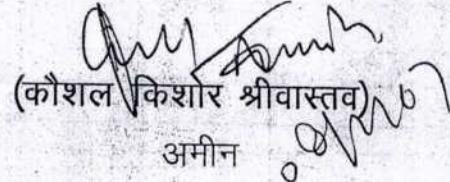 (कौशल किशोर श्रीवास्तव)
अमीन